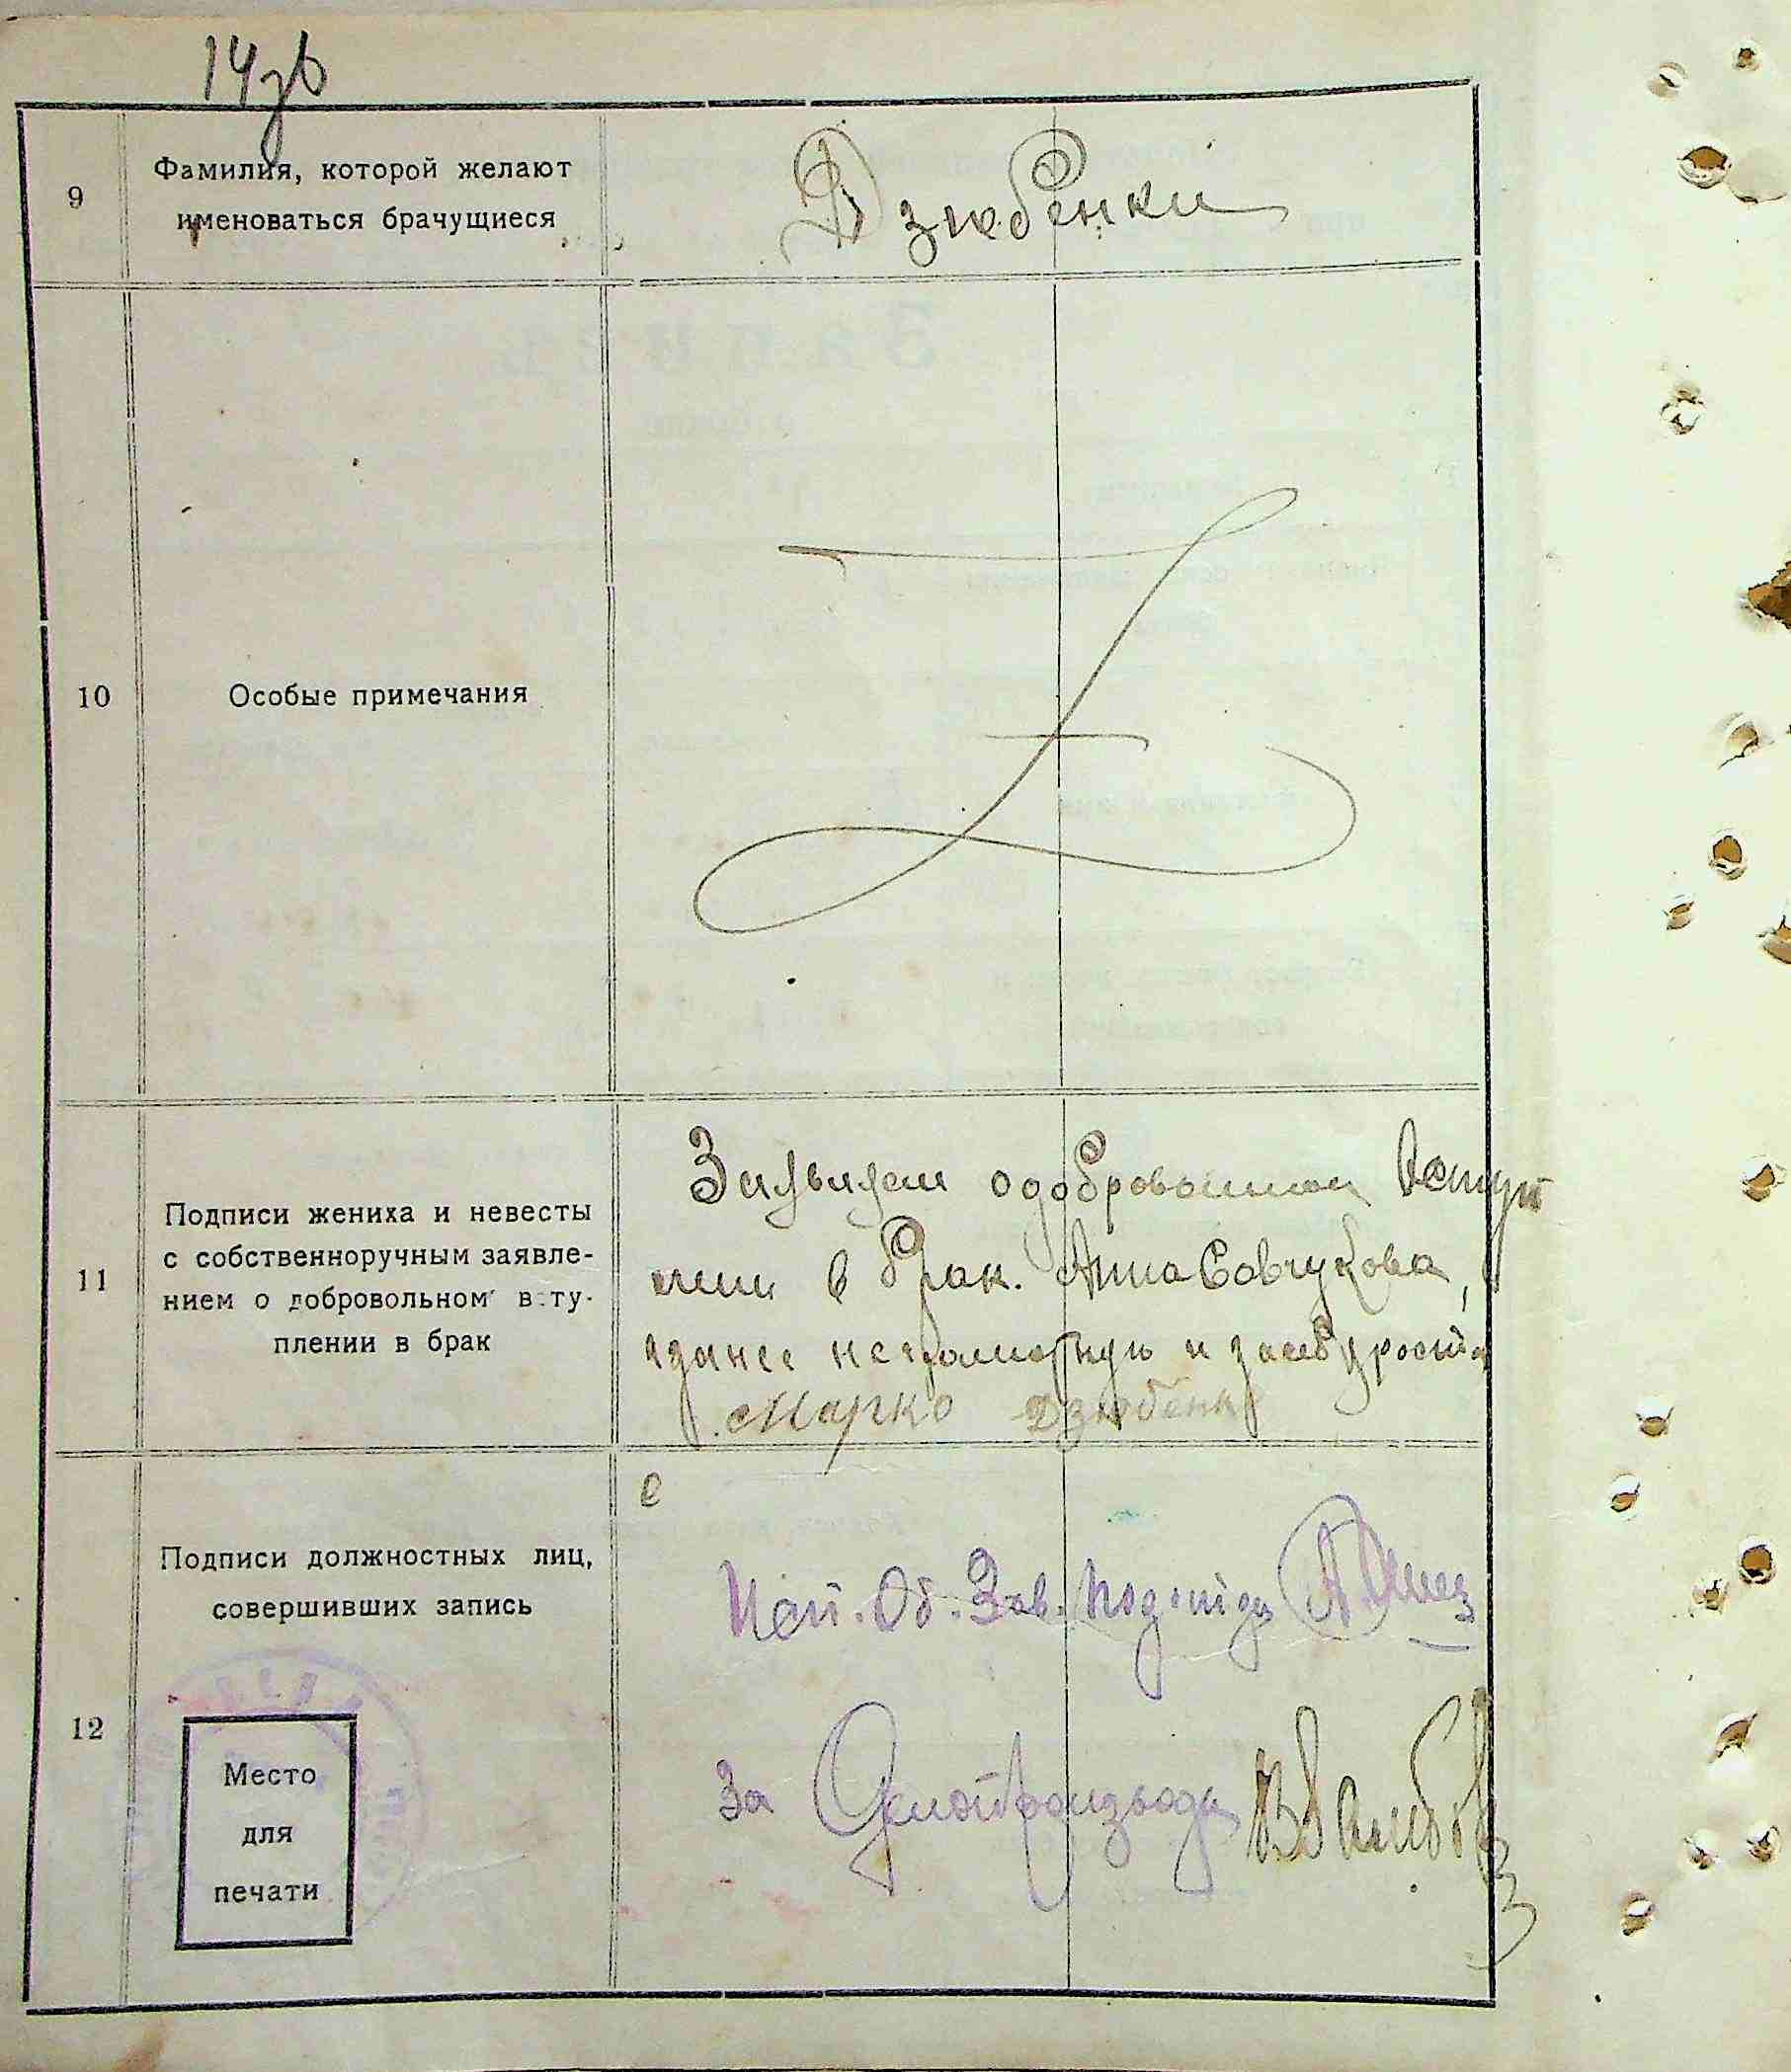 14зв
9
Фамилия, которой желают
именоваться брачущиеся
Дзюбенки
10
Особые примечания
11
Подписи жениха и невесты
с собственноручным заявле-
нием о добровольном всту-
плении в брак
Заявляем о добровольном вступ
лении в брак. Анна Савчукова,
а за нее неграмотную и за себя
Марко Дзюбенко
12
Подписи должностных лиц,
совершивших запись
Исп. Об. Зав. Подотдел
За Делопроизвода
Место
для
печати